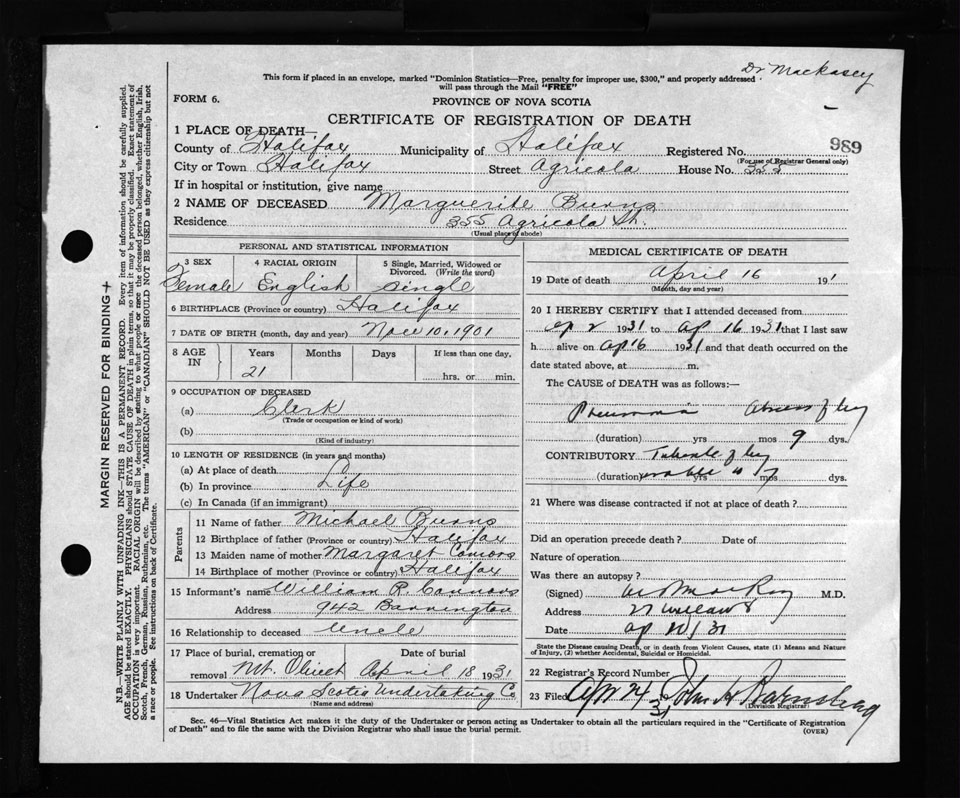 Dr Mackasey
This form if placed in an envelope, marked "Dominion Statistics—Free, penalty for improper use, $300," and properly addressed
will pass through the Mail "FREE"
FORM 6.
PROVINCE OF NOVA SCOTIA
CERTIFICATE OF REGISTRATION OF DEATH
1 PLACE OF DEATH—
County of Halifax Municipality of Halifax Registered No. 989
(For use of Registrar General only)
City or Town Halifax Street Agricola House No. 355
If in hospital or institution, give name
2 NAME OF DECEASED Marguerite Burns
Residence 355 Agricola St.
(Usual place of abode)
PERSONAL AND STATISTICAL INFORMATION
3 SEX 4 RACIAL ORIGIN 5 Single, Married, Widowed or
Divorced. (Write the word)
Female English Single
6 BIRTHPLACE (Province or country) Halifax
7 DATE OF BIRTH (month, day and year) Nov 10, 1901
8 AGE IN Years Months Days If less than one day,
21 hrs. or min.
9 OCCUPATION OF DECEASED
(a) Clerk
(Trade or occupation or kind of work)
(b)
(Kind of industry)
10 LENGTH OF RESIDENCE (in years and months)
(a) At place of death
(b) In province Life
(c) In Canada (if an immigrant)
Parents
11 Name of father Michael Burns
12 Birthplace of father (Province or country) Halifax
13 Maiden name of mother Margaret Connors
14 Birthplace of mother (Province or country) Halifax
15 Informant's name William P. Connors
Address 942 Barrington
16 Relationship to deceased Uncle
17 Place of burial, cremation or Date of burial
removal Mt. Olivet April 18 1931
18 Undertaker Nova Scotia Undertaking Co
(Name and address)
MEDICAL CERTIFICATE OF DEATH
19 Date of death April 16 191
(Month, day and year)
20 I HEREBY CERTIFY that I attended deceased from
Ap 2 1931 to Ap 16 1931 that I last saw
h alive on Ap 16 1931 and that death occurred on the
date stated above, at m.
The CAUSE of DEATH was as follows:
Pneumonia Abscess of lung
(duration) yrs mos 9 dys.
CONTRIBUTORY
(duration) yrs mos dys.
21 Where was disease contracted if not at place of death?
Did an operation precede death? Date of
Nature of operation
Was there an autopsy?
(Signed) M.D.
Address
Date Ap 31
State the Disease causing Death, or in death from Violent Causes, state (1) Means and Nature
of Injury, (2) whether Accidental, Suicidal or Homicidal.
22 Registrar's Record Number
23 Filed Apr 24 31 John H Barnstead
(Division Registrar)
Sec. 46—Vital Statistics Act makes it the duty of the Undertaker or person acting as Undertaker to obtain all the particulars required in the "Certificate of Registration
of Death" and to file the same with the Division Registrar who shall issue the burial permit.
(OVER)
MARGIN RESERVED FOR BINDING
N.B.—WRITE PLAINLY WITH UNFADING INK—THIS IS A PERMANENT RECORD. Every item of information should be carefully supplied.
AGE should be stated EXACTLY. PHYSICIANS should STATE CAUSE OF DEATH in plain terms, so that it may be properly classified. Exact statement of
OCCUPATION is very important. RACIAL ORIGIN will be described by stating to what people or race the deceased person belonged, whether English, Irish,
Scotch, French, German, Russian, Ruthenian, etc. The terms "AMERICAN" or "CANADIAN" SHOULD NOT BE USED as they express citizenship but not
a race or people. See instructions on back of Certificate.